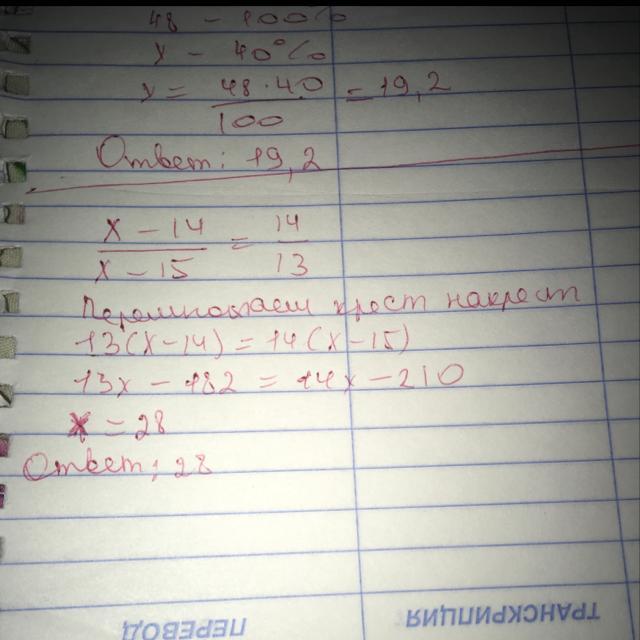 48 – 100%
x – 40%
x = 48·40 / 100 = 19,2
Ответ: 19,2
x – 14 / x – 15 = 14 / 13
Перемножаем крест накрест
13(x–14) = 14(x–15)
13x – 182 = 14x – 210
x = 28
Ответ: 28
ПЕРЕВОД ТРАНСКРИПЦИЯ